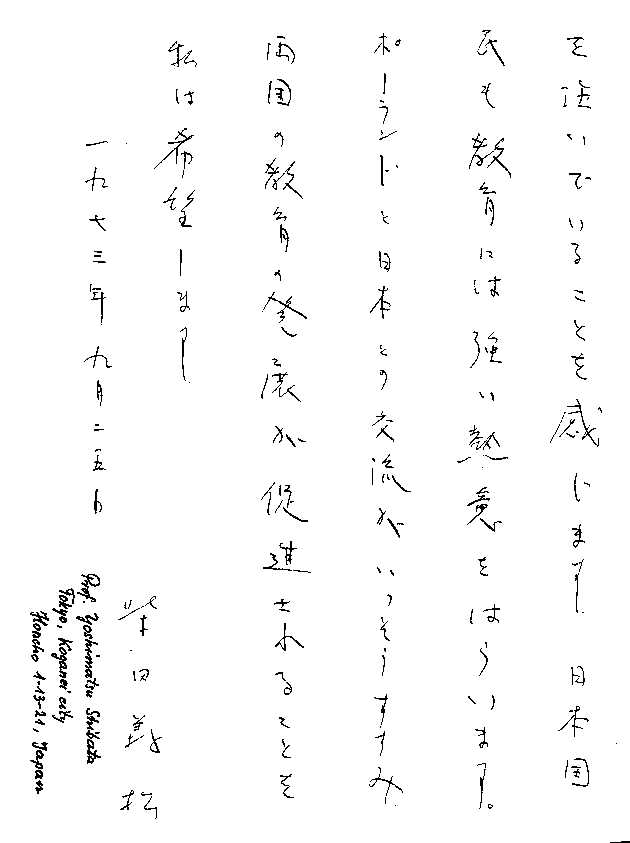 を注いでいることを感じます 日本国
民も教育には強い熱意をはらいます。
ポーランドと日本との交流がいっそうすすみ
両国の教育の発展が促進されることを
私は希望します
一九七三年九月二五日
柴田義松
Prof. Yoshimatsu Shibata
Tokyo, Koganei city
Honcho 1-13-21, Japan